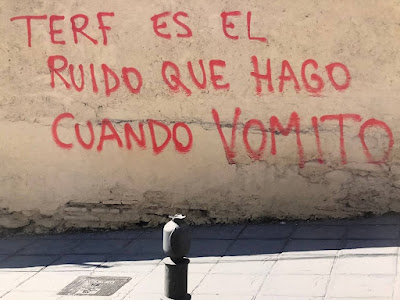 TERF ES EL
RUIDO QUE HAGO
CUANDO VOMITO